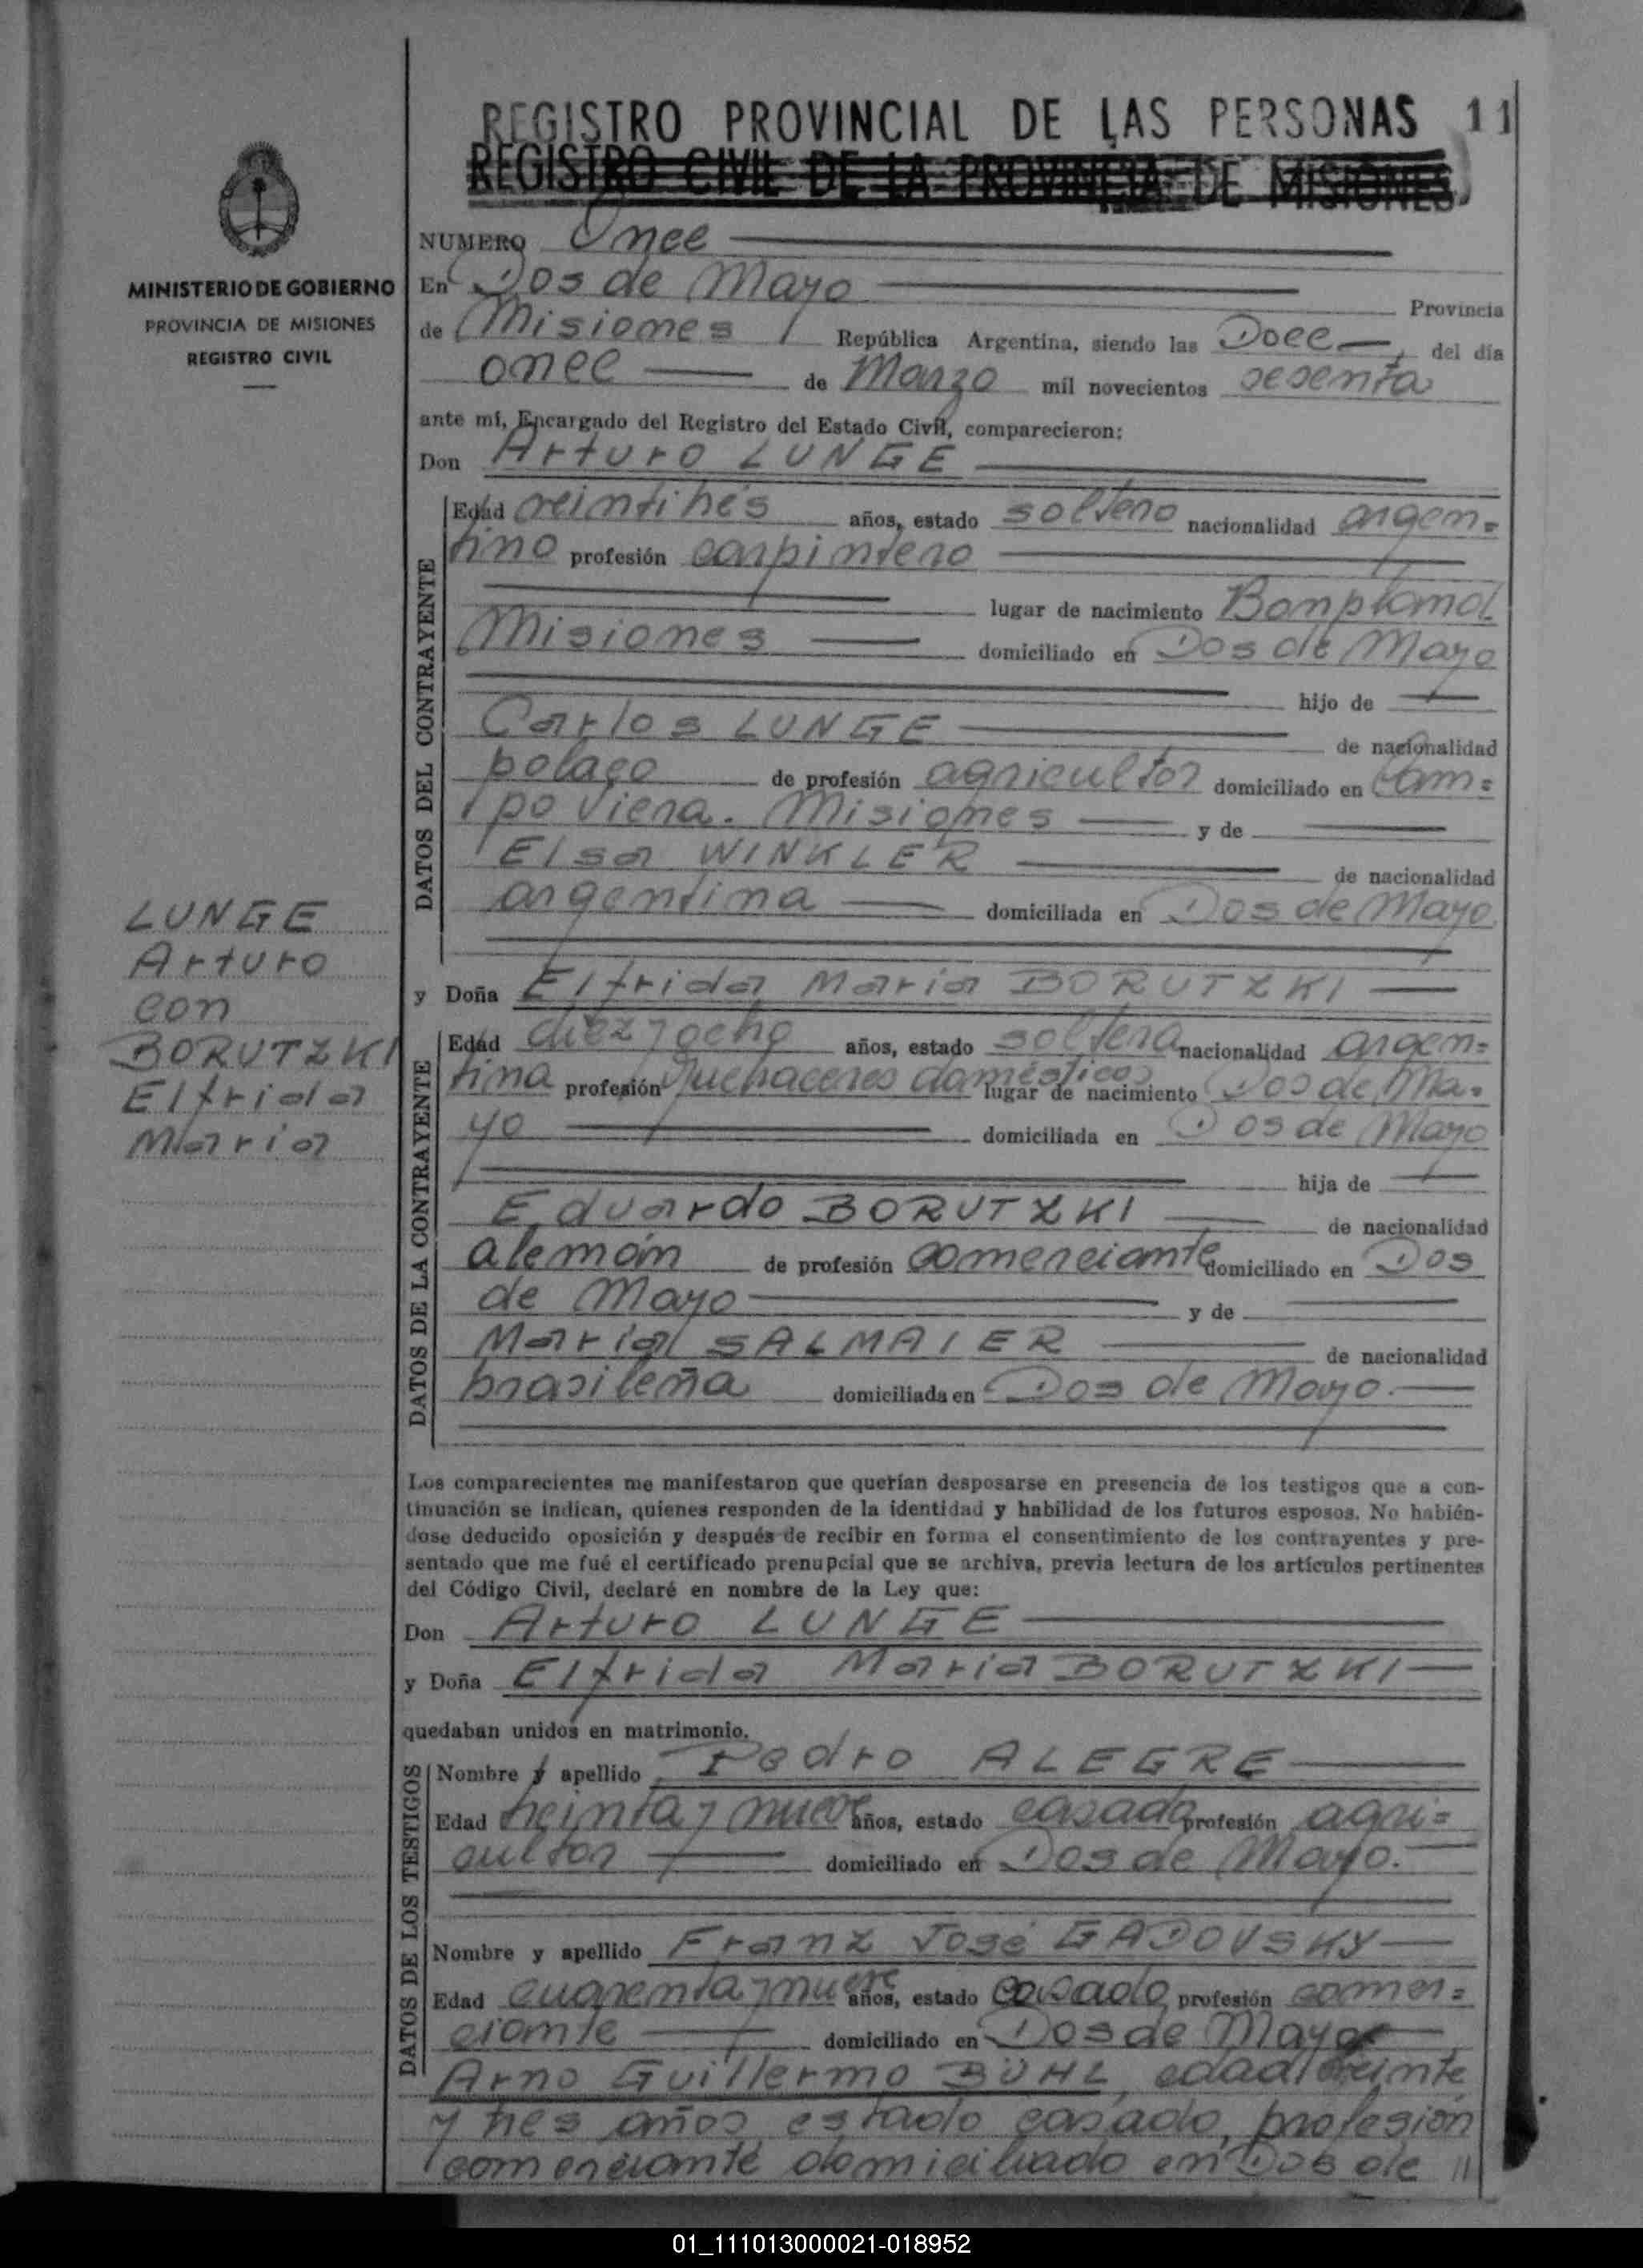 REGISTRO PROVINCIAL DE LAS PERSONAS 11
REGISTRO CIVIL DE LA PROVINCIA DE MISIONES
MINISTERIO DE GOBIERNO
PROVINCIA DE MISIONES
REGISTRO CIVIL
NUMERO Once
En Dos de Mayo
Provincia
de Misiones República Argentina, siendo las Doce, del día
once de Marzo mil novecientos sesenta
ante mí, Encargado del Registro del Estado Civil, comparecieron:
Don Arturo LUNGE
LUNGE
Arturo
con
BORUTZKI
Elfrida
Maria
DATOS DEL CONTRAYENTE
Edad veintitrés años, estado soltero nacionalidad argen-
tino profesión carpintero
lugar de nacimiento Bompland
Misiones domiciliado en Dos de Mayo
hijo de
Carlos LUNGE
de nacionalidad
polaco de profesión agricultor domiciliado en Cam-
po Viera. Misiones y de
Elsa WINKLER
de nacionalidad
argentina domiciliada en Dos de Mayo
y Doña Elfrida Maria BORUTZKI
DATOS DE LA CONTRAYENTE
Edad diez y ocho años, estado soltera nacionalidad argen-
tina profesión Quehaceres domésticos lugar de nacimiento Dos de Ma-
yo domiciliada en Dos de Mayo
hija de
Eduardo BORUTZKI
de nacionalidad
alemán de profesión comerciante domiciliado en Dos
de Mayo y de
Maria SALMAIER
de nacionalidad
brasileña domiciliada en Dos de Mayo.
Los comparecientes me manifestaron que querían desposarse en presencia de los testigos que a con-
tinuación se indican, quienes responden de la identidad y habilidad de los futuros esposos. No habién-
dose deducido oposición y después de recibir en forma el consentimiento de los contrayentes y pre-
sentado que me fué el certificado prenupcial que se archiva, previa lectura de los artículos pertinentes
del Código Civil, declaré en nombre de la Ley que:
Don Arturo LUNGE
y Doña Elfrida Maria BORUTZKI
quedaban unidos en matrimonio.
DATOS DE LOS TESTIGOS
Nombre y apellido Pedro ALEGRE
Edad treinta y nueve años, estado casado profesión agri-
cultor domiciliado en Dos de Mayo.
Nombre y apellido Franz José GADOVSKY
Edad cuarenta y nueve años, estado casado profesión comer-
ciante domiciliado en Dos de Mayo
Arno Guillermo BÜHL, edad treinte
y tres años estado casado, profesión
comerciante domiciliado en Dos de //
01_111013000021-018952